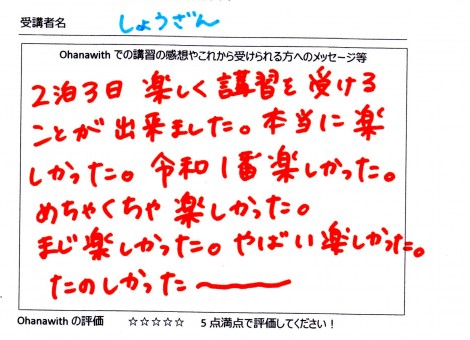 受講者名 しょうざん
Ohanawith での講習の感想やこれから受けられる方へのメッセージ等
2泊3日 楽しく講習を受ける
ことが出来ました。本当に楽
しかった。令和1番楽しかった。
めちゃくちゃ楽しかった。
まじ楽しかった。やばい楽しかった。
たのしかった〜
Ohanawith の評価 ☆☆☆☆☆ 5点満点で評価してください！